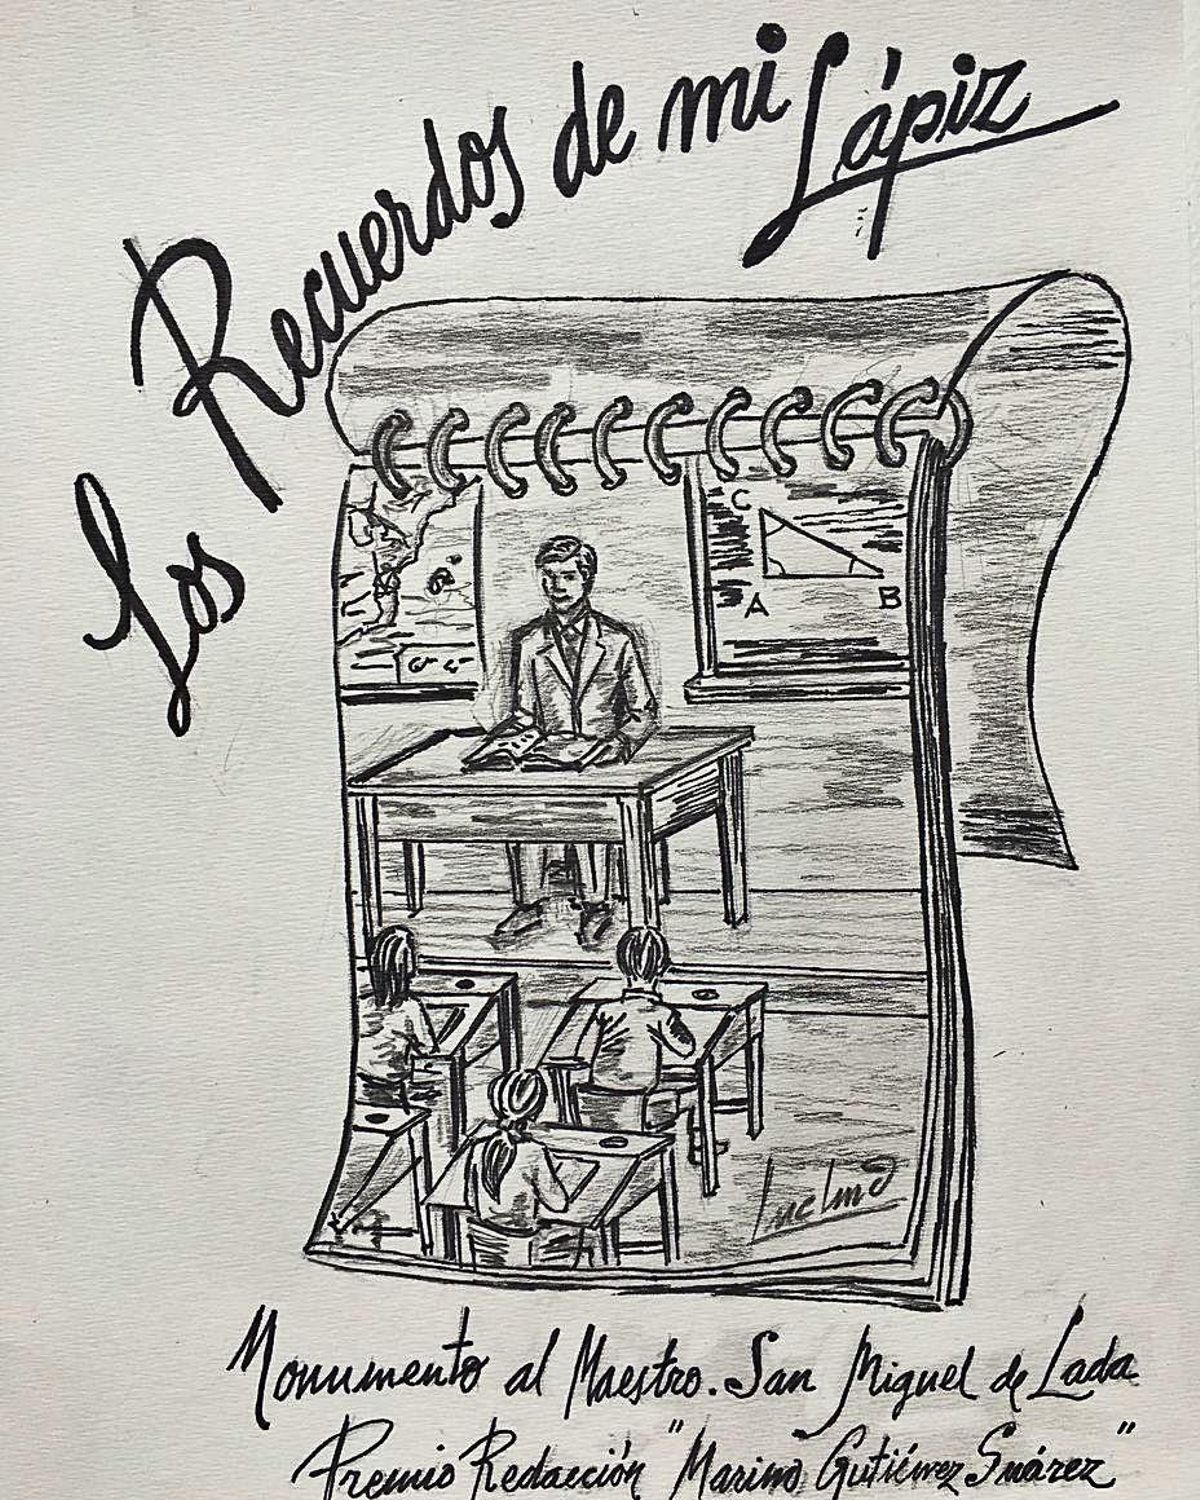 Los Recuerdos de mi Lápiz
C
A
B
Monumento al Maestro. San Miguel de Lada
Premio Redacción "Marino Gutiérrez Suárez"